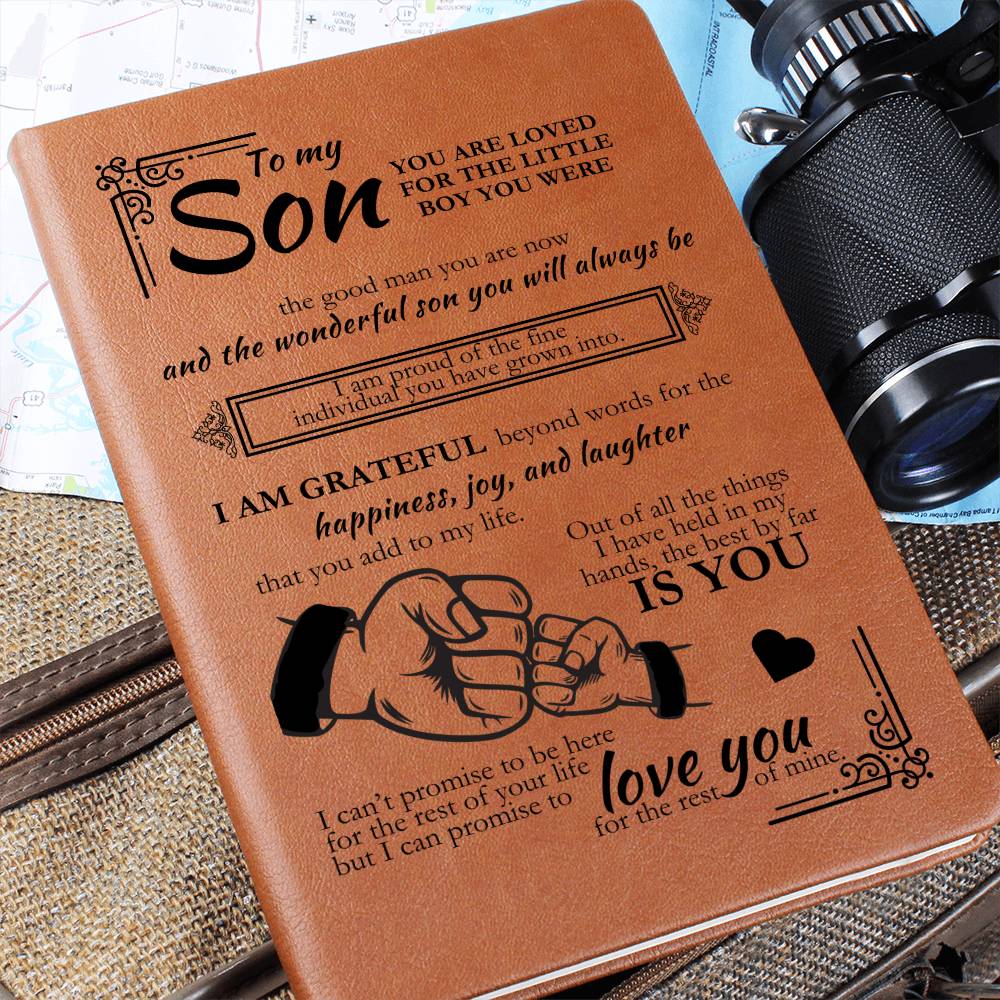 To my
Son
YOU ARE LOVED
FOR THE LITTLE
BOY YOU WERE
the good man you are now
and the wonderful son you will always be
I am proud of the fine
individual you have grown into.
I AM GRATEFUL beyond words for the
happiness, joy, and laughter
that you add to my life.
Out of all the things
I have held in my
hands, the best by far
IS YOU
I can't promise to be here
for the rest of your life
but I can promise to
love you
for the rest of mine.
Parrish
Buffalo Creek
Golf Course
Woodlands G C
Airport
Ranch
Dixie Sky
41
INTRACOASTAL
41
Tampa Bay